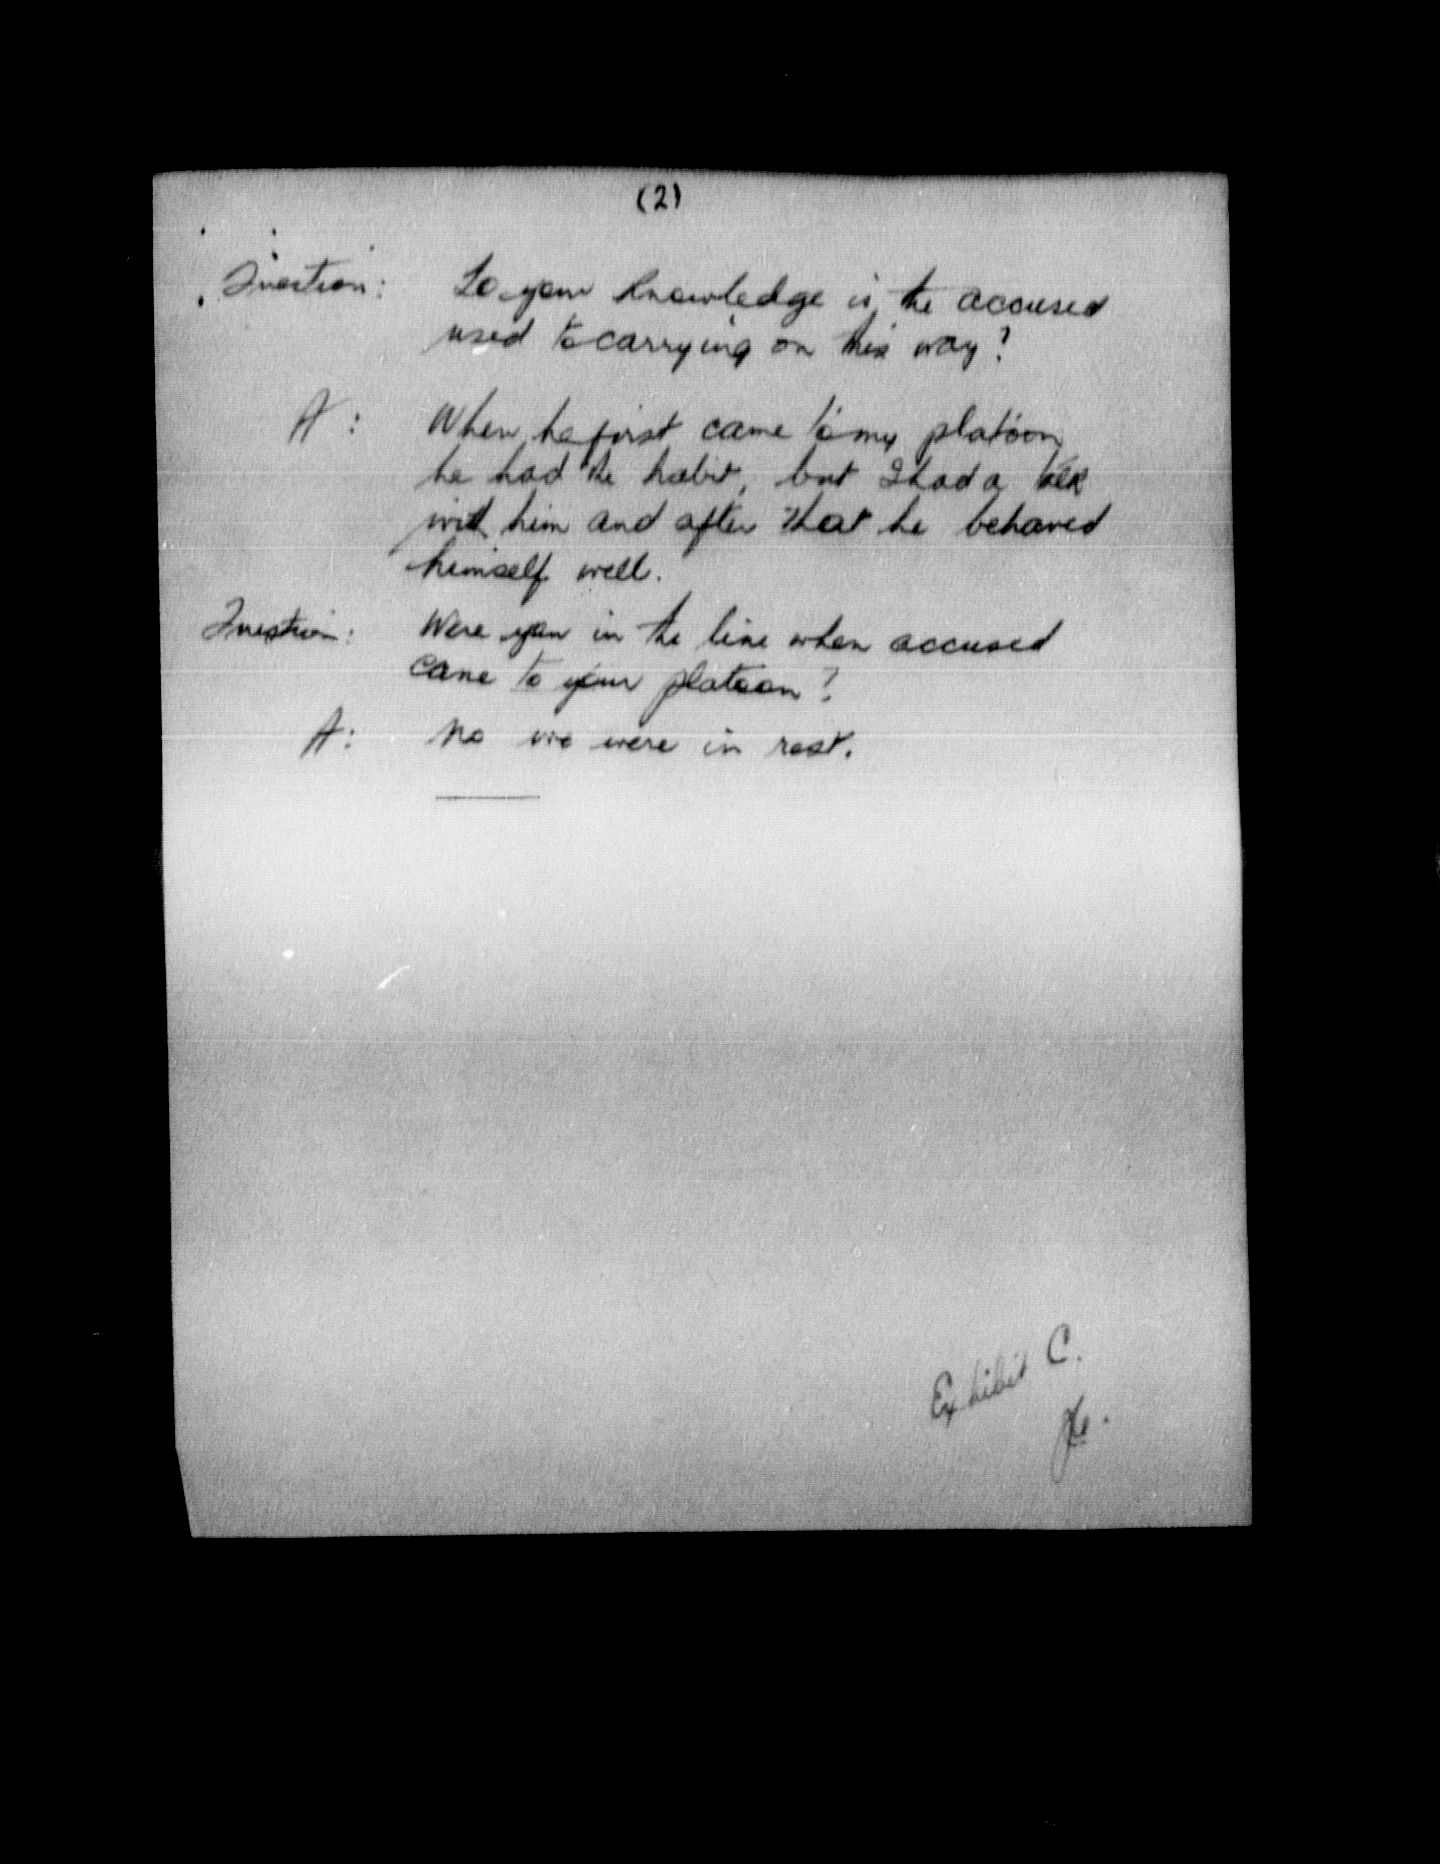 (2)
Question: To your knowledge is the accused
used to carrying on this way?
A: When he first came to my platoon
he had the habit, but I had a talk
with him and after that he behaved
himself well.
Question: Were you in the line when accused
came to your platoon?
A: No we were in rest.
Exhibit C.